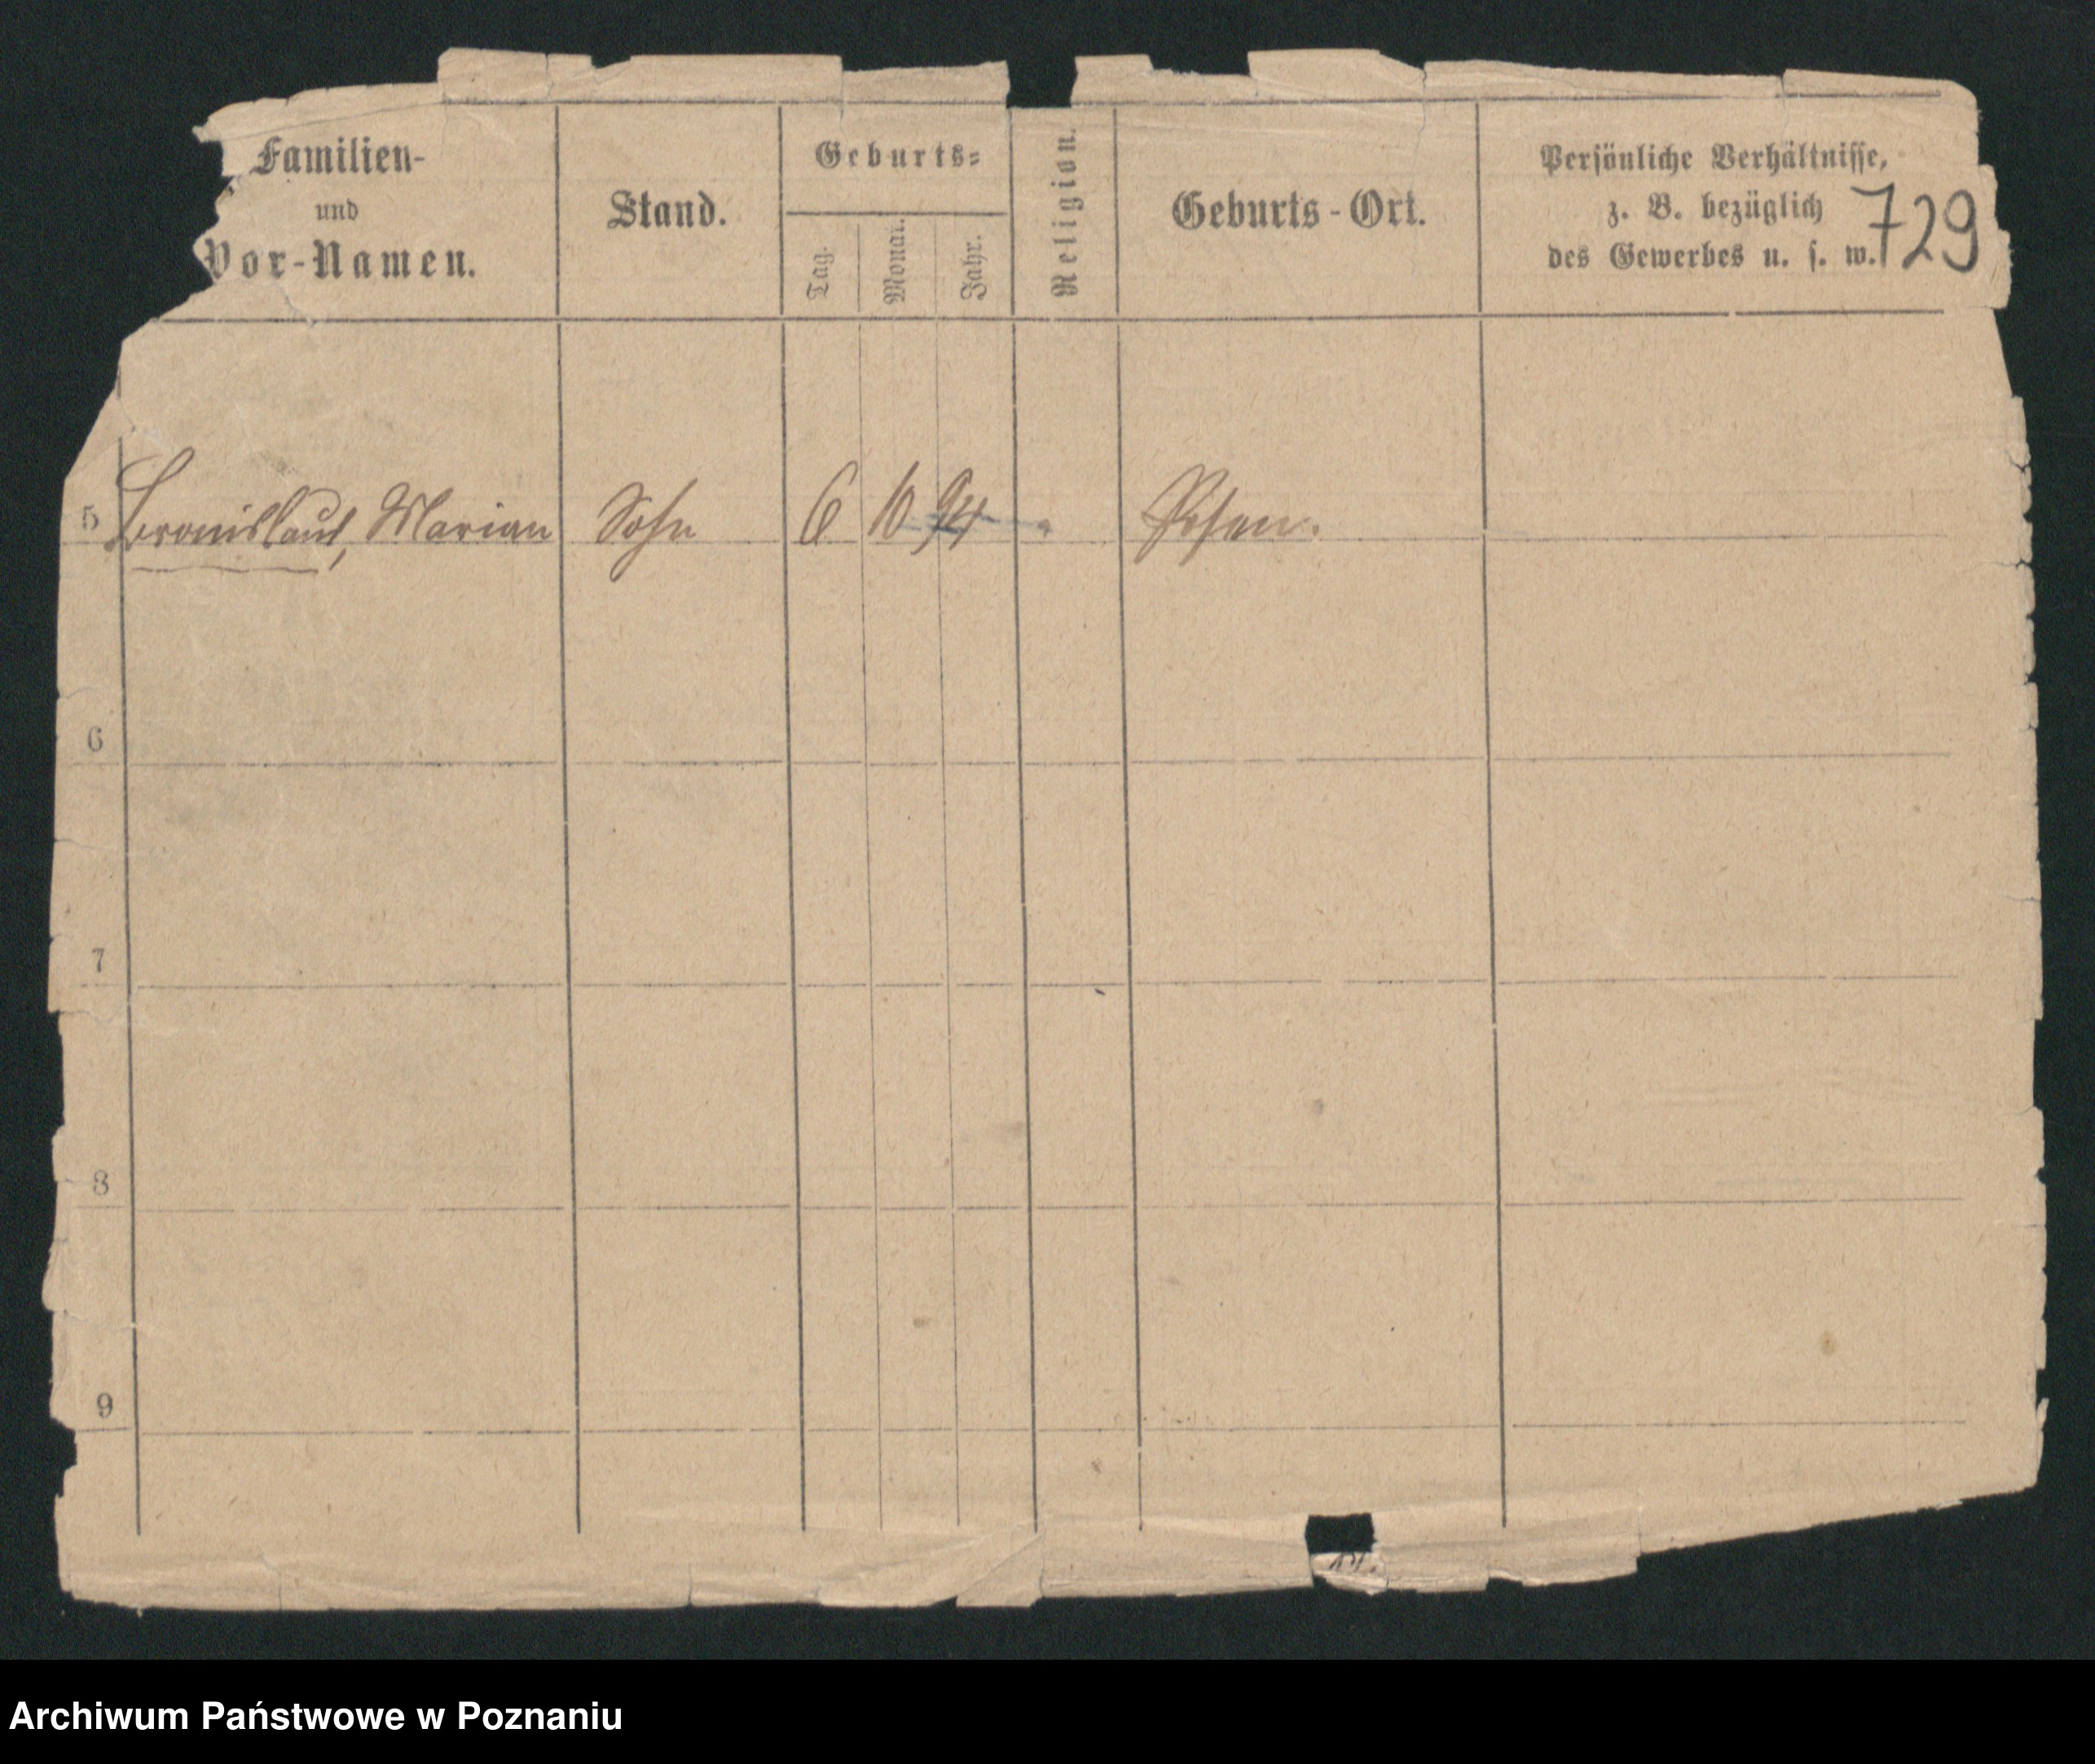 Familien-
und
Vor-Namen.
Stand.
Geburts-
Tag.
Monat.
Jahr.
Religion.
Geburts-Ort.
Persönliche Verhältnisse,
z. B. bezüglich
des Gewerbes u. s. w.
729
5 Bronislaus, Marian Sohn 6 10 94 " Posen.
6
7
8
9
Archiwum Państwowe w Poznaniu